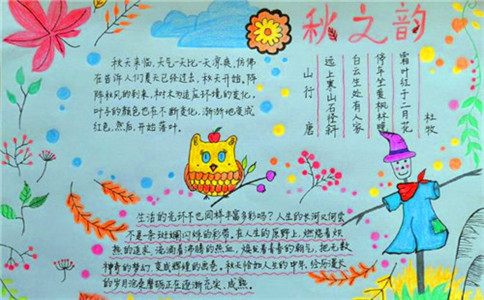 秋之韵
秋天来临,天气一天比一天凉爽,仿佛
在告诉人们夏天已经过去,秋天开始,阵
阵秋风的到来,树木为适应环境的变化,
叶子的颜色也在不断变化,渐渐地变成
红色,然后,开始落叶。
山行 唐
远上寒山石径斜
白云生处有人家
停车坐爱枫林晚
霜叶红于二月花
杜牧
生活的光环不也同样丰富多彩吗?人生的长河又何尝
不是一条斑斓闪烁的彩带,在人生的原野上,燃烧着炽
热的追求,流淌着沸腾的热血,焕发着青春的朝气,把无数
神奇的梦幻,变成辉煌的出色。秋天恰如人生的中年,经历漫长
的岁月沧桑磨砺正在逐渐充实、成熟。